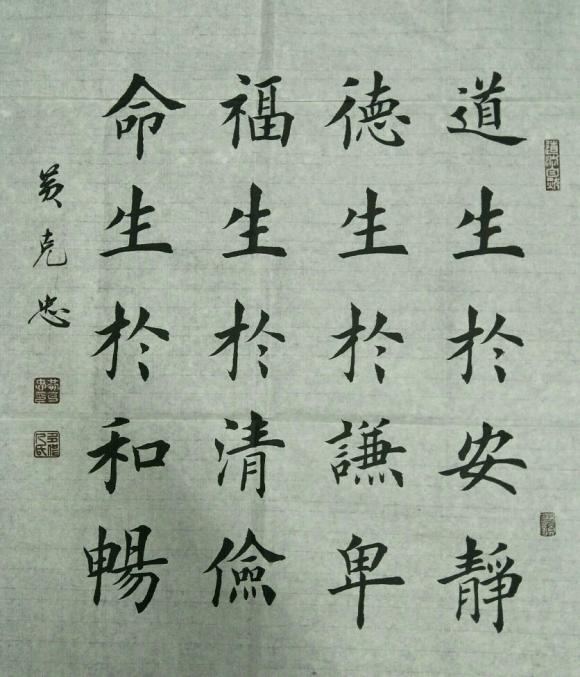 道生於安靜
德生於謙卑
福生於清儉
命生於和暢
黃克忠